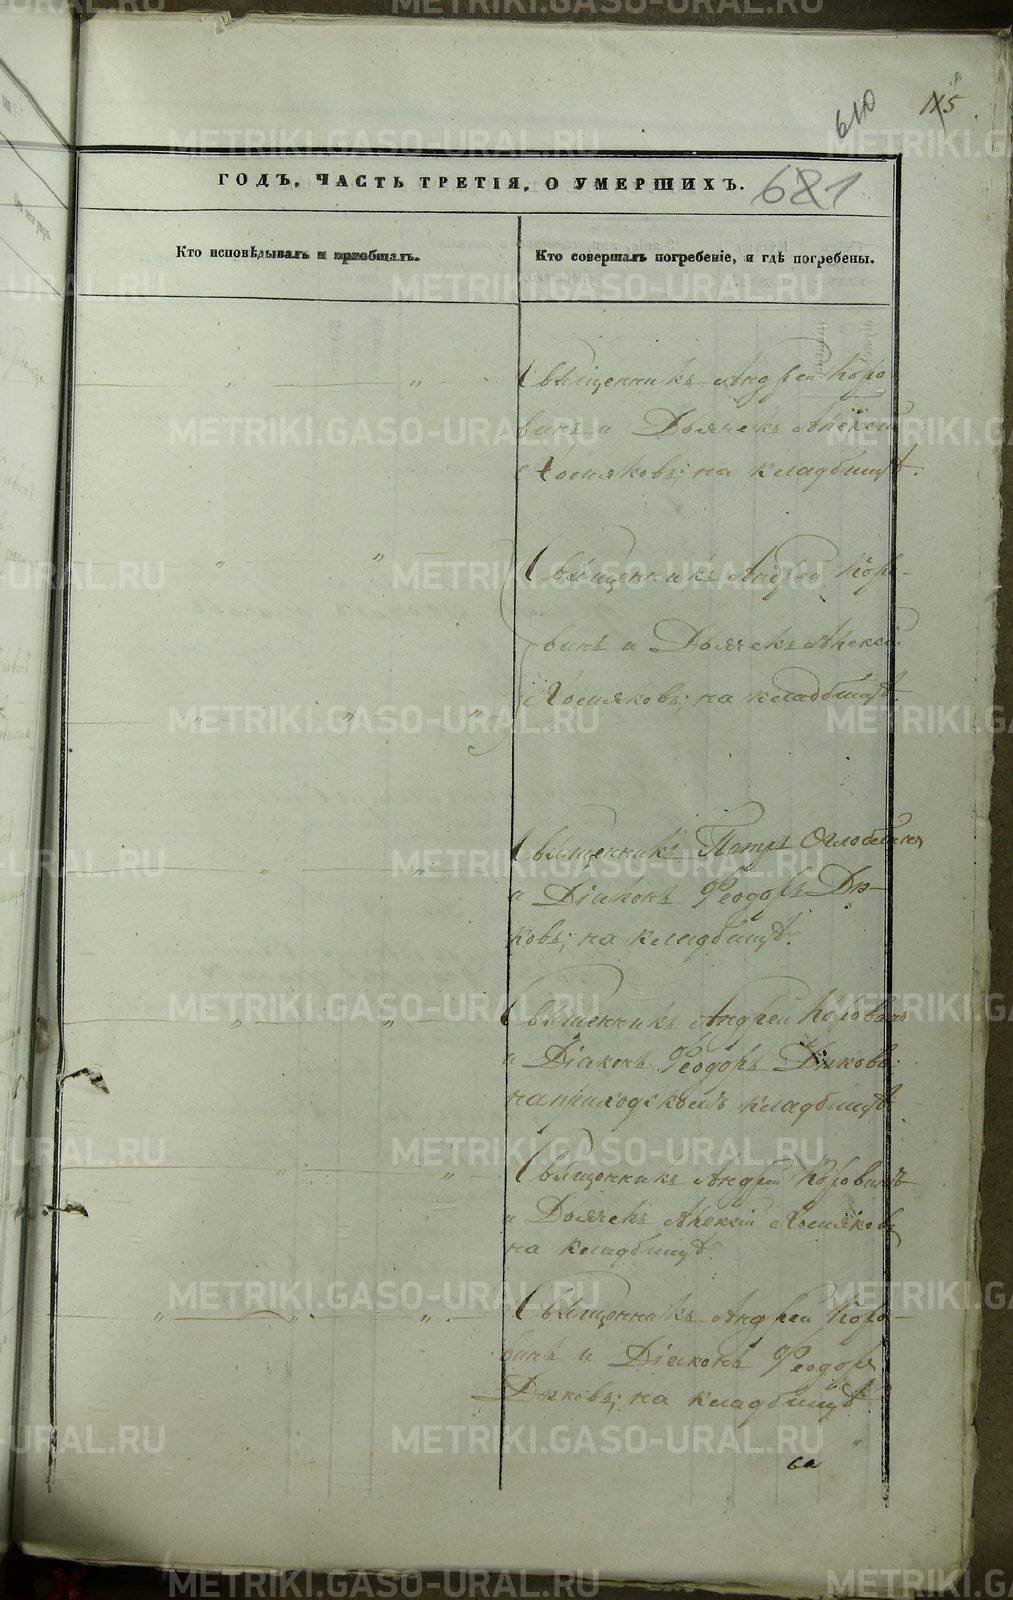 610
115
ГОДЪ, ЧАСТЬ ТРЕТІЯ, О УМЕРШИХЪ.
681
Кто исповѣдывалъ и пріобщалъ.
Кто совершалъ погребеніе, и гдѣ погребены.
Священникъ Андрей Коро
винъ и Дьячекъ Алексій
Хомяковъ; на кладбищѣ.
Священникъ Андрей Коро-
винъ и Дьячекъ Алексій
Хомяковъ; на кладбищѣ.
Священникъ Петръ
и Діаконъ Ѳеодоръ Ды-
ковъ; на кладбищѣ.
Священникъ Андрей Коровинъ
и Діаконъ Ѳеодоръ Дыковъ;
на приходскомъ кладбищѣ.
Священникъ Андрей Коровинъ
и Дьячекъ Алексій Хомяковъ
на кладбищѣ.
Священникъ Андрей Коро-
винъ и Діаконъ Ѳеодоръ
Дыковъ; на кладбищѣ.
METRIKI.GASO-URAL.RU